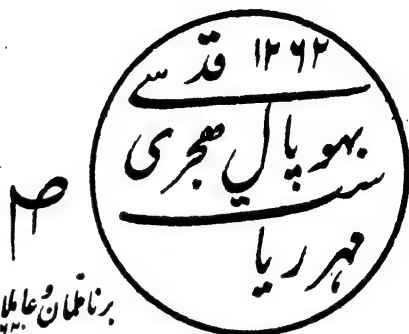 ۱۲۶۲ قدسی
بهوپال هجری
مهر ریاست
بر ناظمان و عاملا